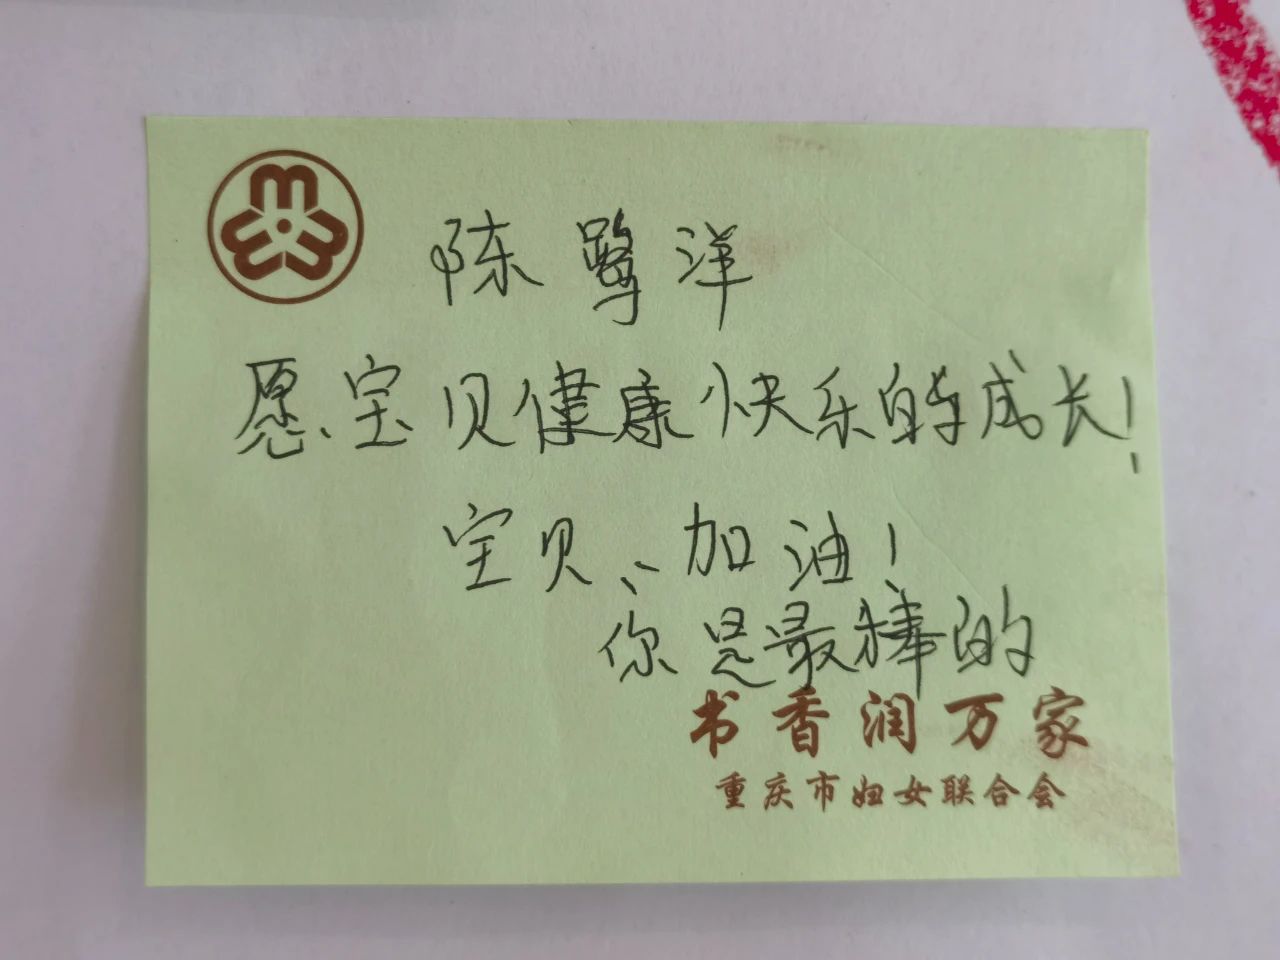 陈鹭洋
愿宝贝健康快乐的成长！
宝贝、加油！
你是最棒的
书香润万家
重庆市妇女联合会